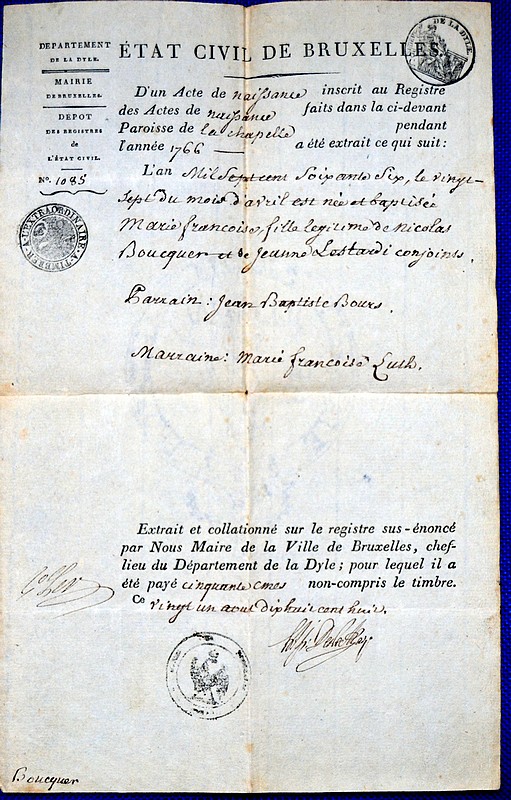 DÉPARTEMENT
DE LA DYLE.
MAIRIE
DE BRUXELLES.
DÉPOT
DES REGISTRES
de
L'ÉTAT CIVIL.
N.o 1085
A-L'EXTRAORDINAIRE A-TIMBRER
DE LA DYLE
ÉTAT CIVIL DE BRUXELLES.
D'un Acte de naissance inscrit au Registre
des Actes de naissance faits dans la ci-devant
Paroisse de la chapelle pendant
l'année 1766 a été extrait ce qui suit:
L'an Mil Sept cent Soixante Six, le vingt-
Sept du mois d'avril est née et baptisée
Marie francoise, fille legitime de Nicolas
Boucquer et de Jeanne Lestardi conjoints.
Parrain: Jean Baptiste Bours.
Marraine: Marie francoise Luth.
Extrait et collationné sur le registre sus-énoncé
par Nous Maire de la Ville de Bruxelles, chef-
lieu du Département de la Dyle; pour lequel il a
été payé cinquante cmes non-compris le timbre.
Ce vingt un aout dix huit cent huit.
Boucquer